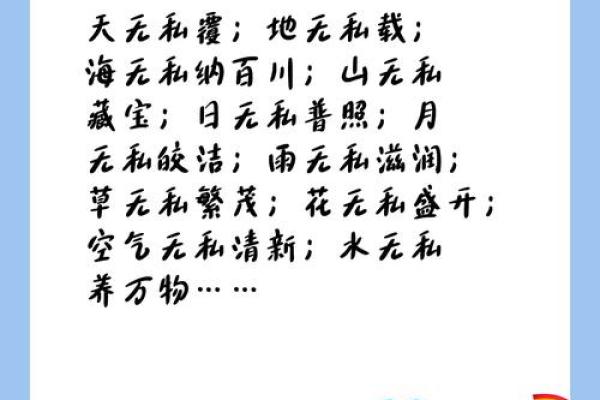 天无私覆；地无私载；
海无私纳百川；山无私
藏宝；日无私普照；月
无私皎洁；雨无私滋润；
草无私繁茂；花无私盛开；
空气无私清新；水无私
养万物……